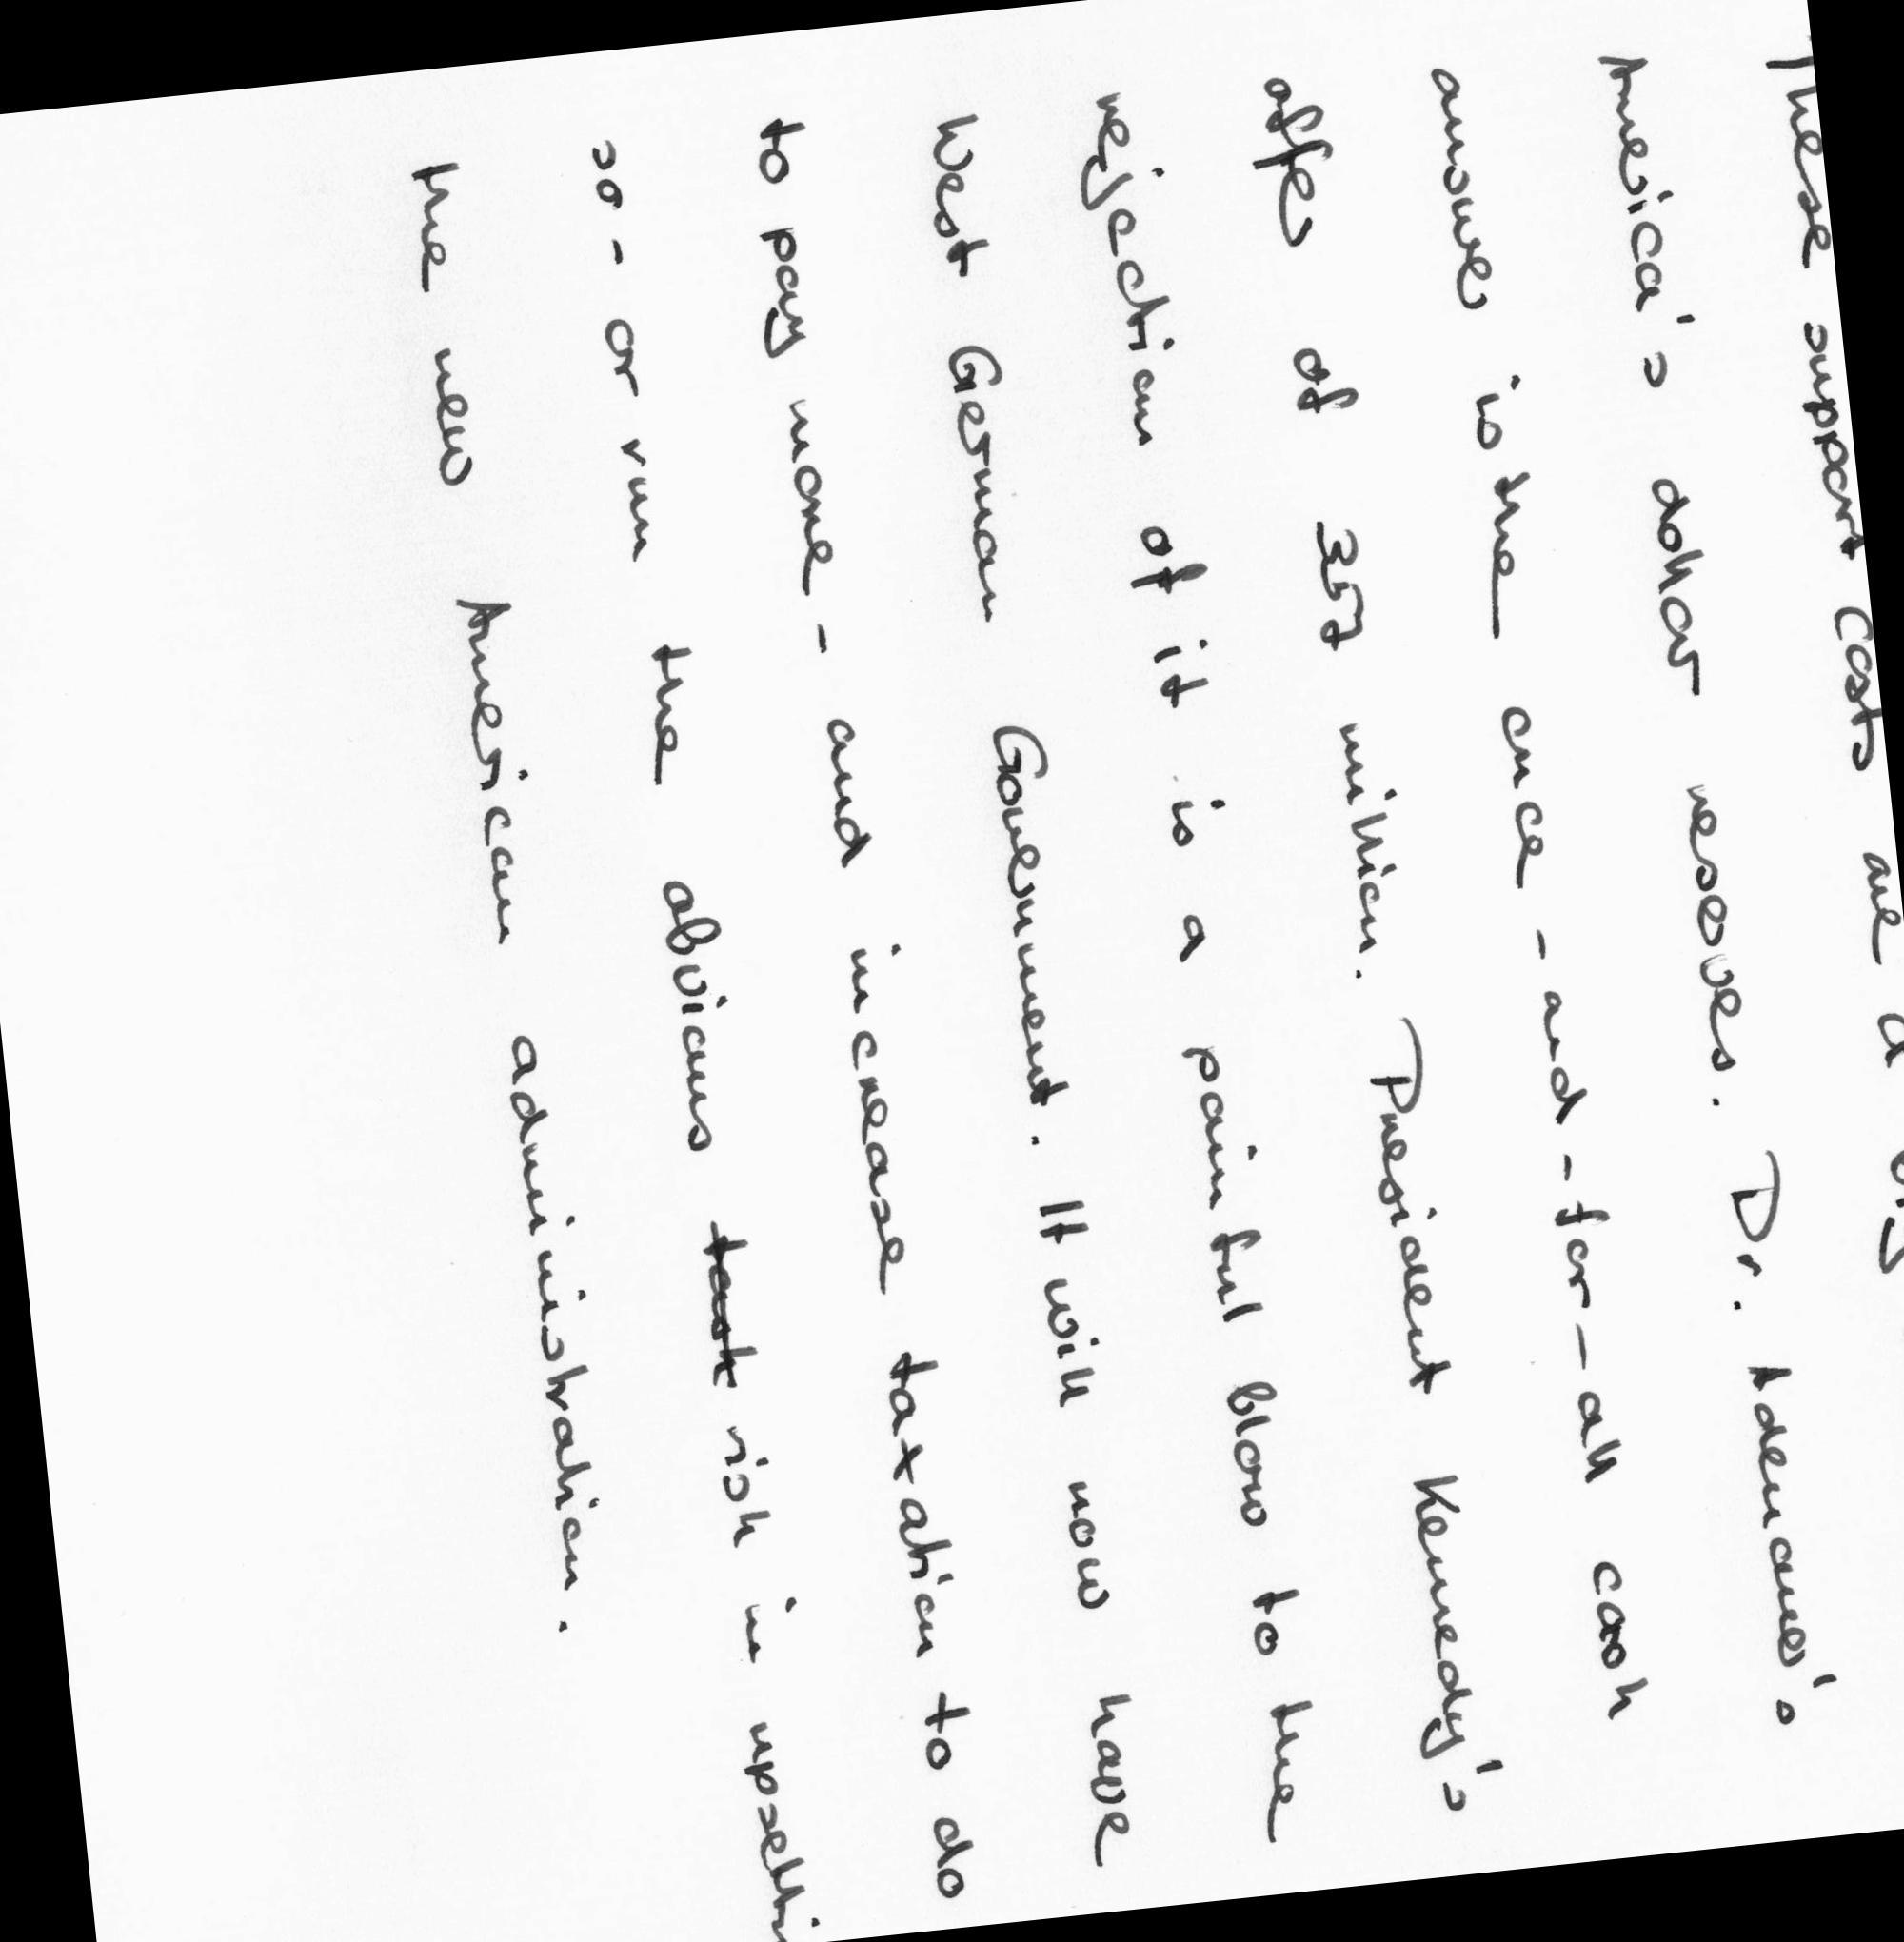 These support costs are a
America's dollar reserves. Dr. Adenauer's
answer is the once-and-for-all cash
offer of 357 million. President Kennedy's
rejection of it is a painful blow to the
West German Government. It will now have
to pay more - and increase taxation to do
so - or run the obvious risk in upsetti
the new American administration.